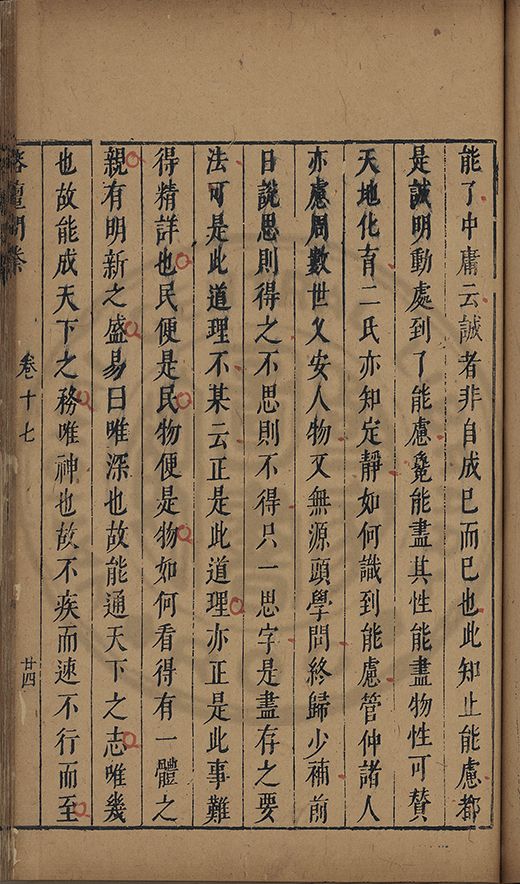 能了中庸云誠者非自成已而已也此知止能慮都
是誠明動處到了能慮纔能盡其性能盡物性可贊
天地化育二氏亦知定靜如何識到能慮管仲諸人
亦慮周數世又安人物又無源頭學問終歸少補前
日說思則得之不思則不得只一思字是盡存之要
法可是此道理不某云正是此道理亦正是此事難
得精詳也民便是民物便是物如何看得有一體之
親有明新之盛易曰唯深也故能通天下之志唯幾
也故能成天下之務唯神也故不疾而速不行而至
榕壇問業
卷十七
廿四